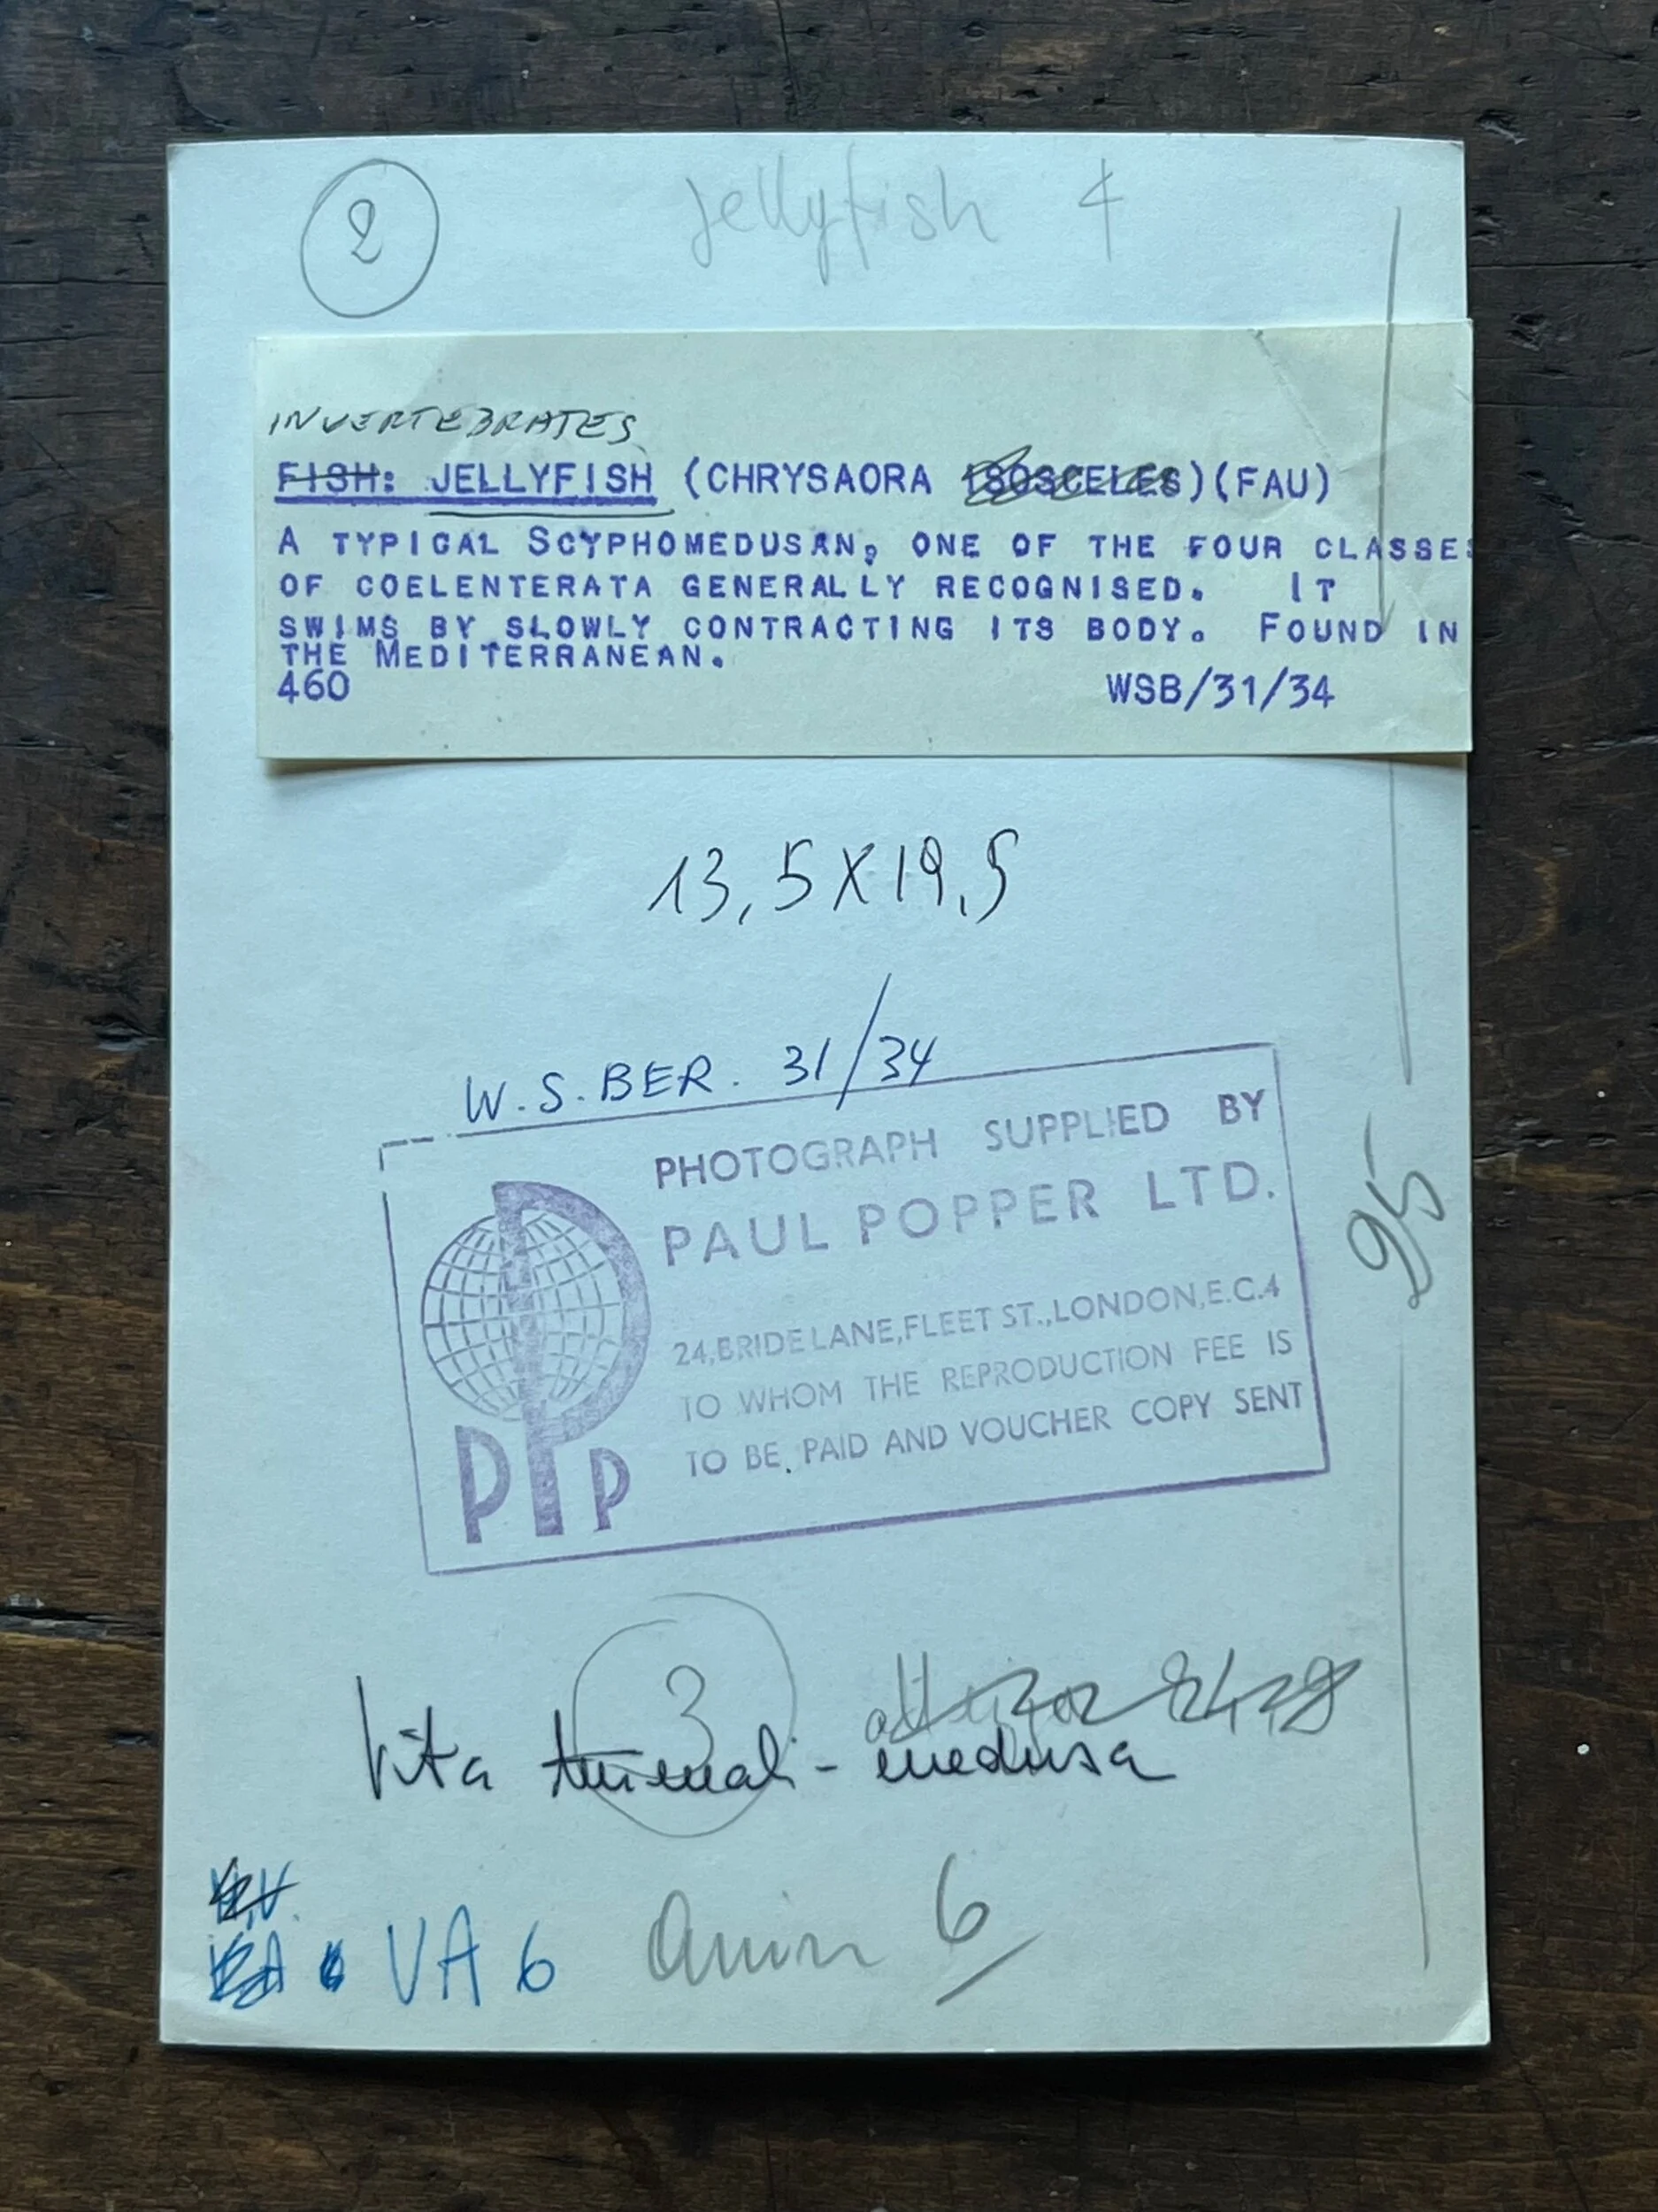 2
Jellyfish 4
INVERTEBRATES
FISH: JELLYFISH (CHRYSAORA ISOSCELES)(FAU)
A TYPICAL SCYPHOMEDUSAN, ONE OF THE FOUR CLASSES
OF COELENTERATA GENERALLY RECOGNISED. IT
SWIMS BY SLOWLY CONTRACTING ITS BODY. FOUND IN
THE MEDITERRANEAN.
460 WSB/31/34
13,5X19,5
W.S.BER. 31/34
PHOTOGRAPH SUPPLIED BY
PAUL POPPER LTD.
24,BRIDE LANE,FLEET ST.,LONDON,E.C.4
TO WHOM THE REPRODUCTION FEE IS
TO BE PAID AND VOUCHER COPY SENT
PPP
95
3
Vita - medusa
VA 6
6